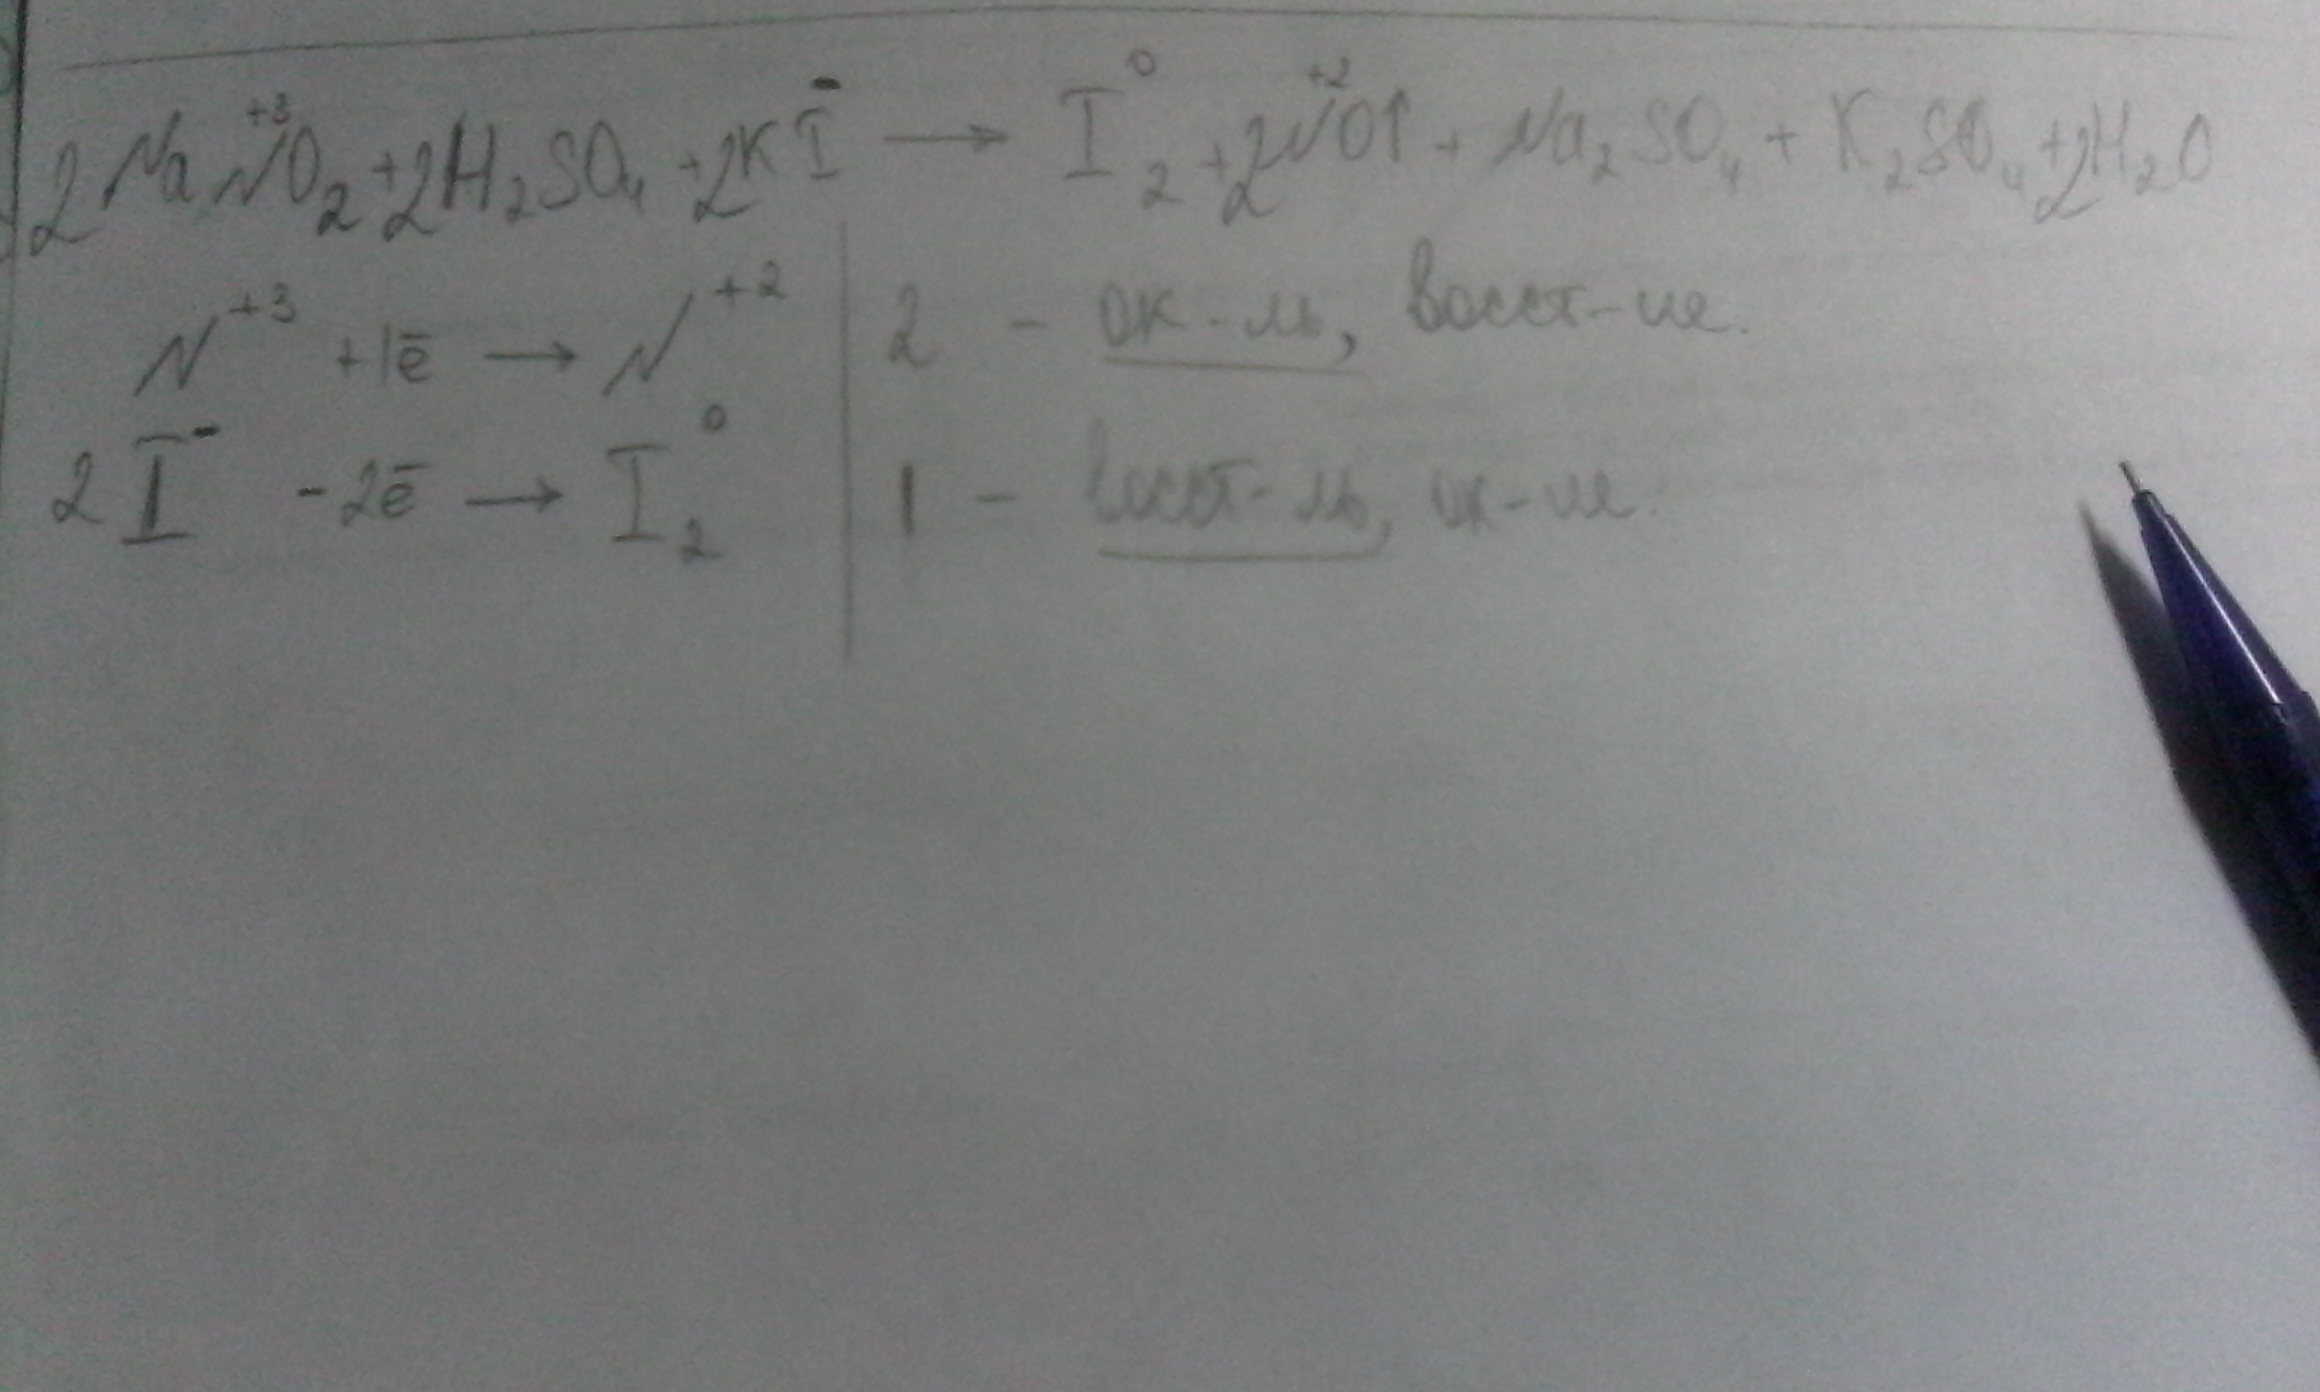 2NaN⁺³O₂ + 2H₂SO₄ + 2KI⁻ → I₂⁰ + 2N⁺²O↑ + Na₂SO₄ + K₂SO₄ + 2H₂O
N⁺³ + 1ē → N⁺² | 2 - ок-ль, восст-ие.
2I⁻ - 2ē → I₂⁰ | 1 - восст-ль, ок-ие.